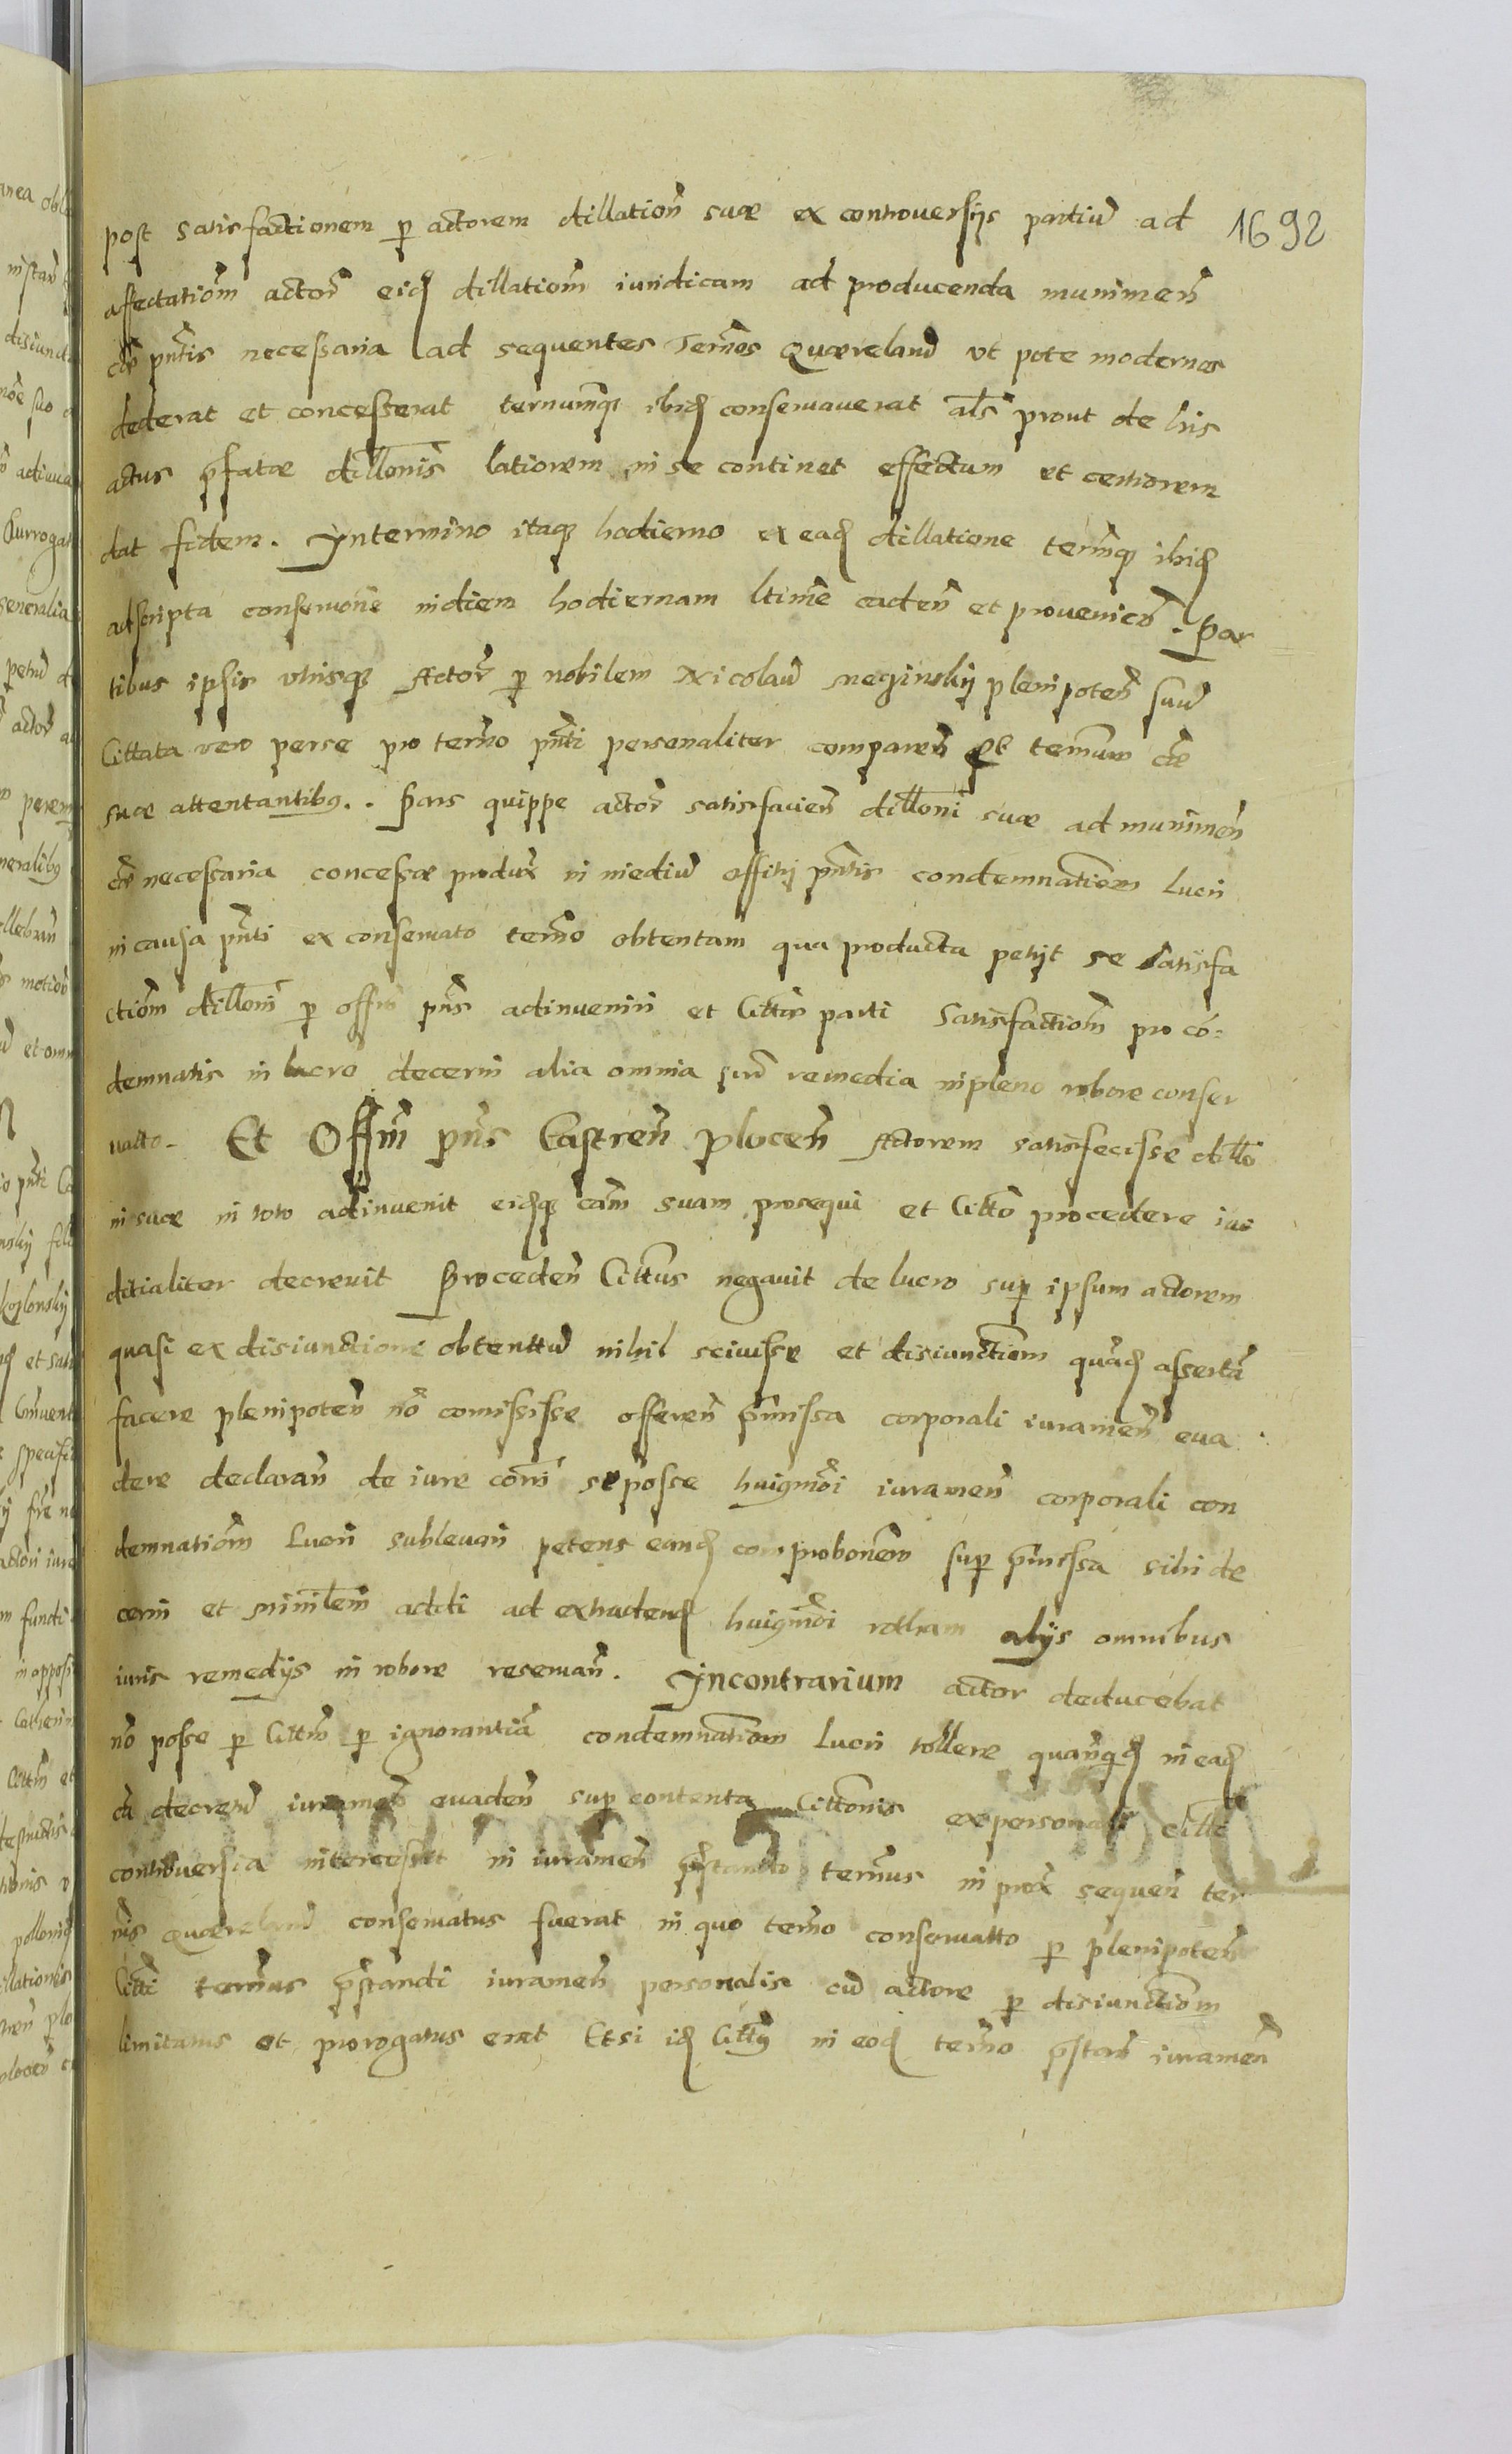 post satisfactionem p actorem dillation̄ suæ ex controversijs partiū ad 1692
affectatiōm actor̄ eid dillatiōm iuridicam ad producenda munimen̄
cāē pn̄tis necessaria ad sequentes Term̄os Quærelarū vt pote modernos
dederat et concesserat terminumq̄ ibid conservaverat al̄s prout de his
actus p̄fatæ dill̄onis latiorem in se continet effectum et certiorem
dat fidem. In termino itaq hodierno ex ead dillatione term̄oq ibid
adscripta conserv̄one in diem hodiernam l̄time caden̄ et provenien̄. Par
tibus ipsis vtrisq Actor̄ p nobilem Nicolaū plenipoten̄ suū
Cittata vero per se pro term̄o pn̄ti personaliter comparen̄ et terminum cāē
suæ attentantibus. Pars quippe actor̄ satisfacien̄ dill̄oni suæ ad munimen̄
cāē necessaria concessæ produx̄ in mediū offitij pn̄tis condemnatiōm lucri
in causa pn̄ti ex conservato term̄o obtentam qua producta petijt se satisfa
ctiōm dill̄oni p offm̄ pn̄s adinveniri et Citt̄æ parti satisfactiōm pro cō:
demnatis in lucro decerni alia omnia iurū remedia in pleno robore conser
vatto. Et Offm̄ pn̄s Castren̄ Plocen̄ Actorem satisfecisse dill̄o
ni suæ in toto adinvenit eidq cām suam prosequi et Citt̄o procedere iu
ditialiter decrevit Proceden̄ Citt̄us negavit de lucro sup ipsum actorem
quasi ex disiunctione obtenttū nihil scivisse et disiunctiōm quād assertā
facere plenipoten̄ nō comisisse offeren̄ p̄missa corporali iuramen̄ eva
dere declaran̄ de iure com̄i se posse huiusmōdi iuramen̄ corporali con
demnatiōm Lucri sublevari petens eand comprobōnem sup p̄missa sibi de
cerni et minīlem addi ad extradend huiusmōdi rotham alijs omnibus
iuris remedijs in robore reservan̄. In contrarium actor deducebat
nō posse p Citt̄m p ignorantiā condemnatiōm lucri tollere quandquid in ead
cā decretū iuramen̄ evaden̄ sup contenta Citt̄onis ex personali citt̄i
controversia intercessit in iuramen̄ p̄stando term̄us in prox̄ sequen̄ ter
m̄is Quærelarū conservatus fuerat in quo term̄o conservatto p plenipoten̄
Citt̄i term̄us p̄standi iuramen̄ personalis cū actore p disiunctiōm
limitatus et prorogatus erat Et si id Citt̄us in eod term̄o p̄stan̄ iuramen̄